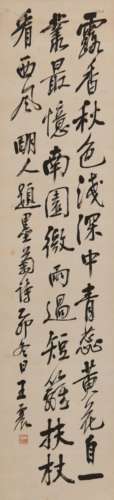 露香秋色淺深中青蕊黃花自一
叢最憶南園微雨過短籬扶杖
看西風 明人題墨菊詩乙卯冬日王震